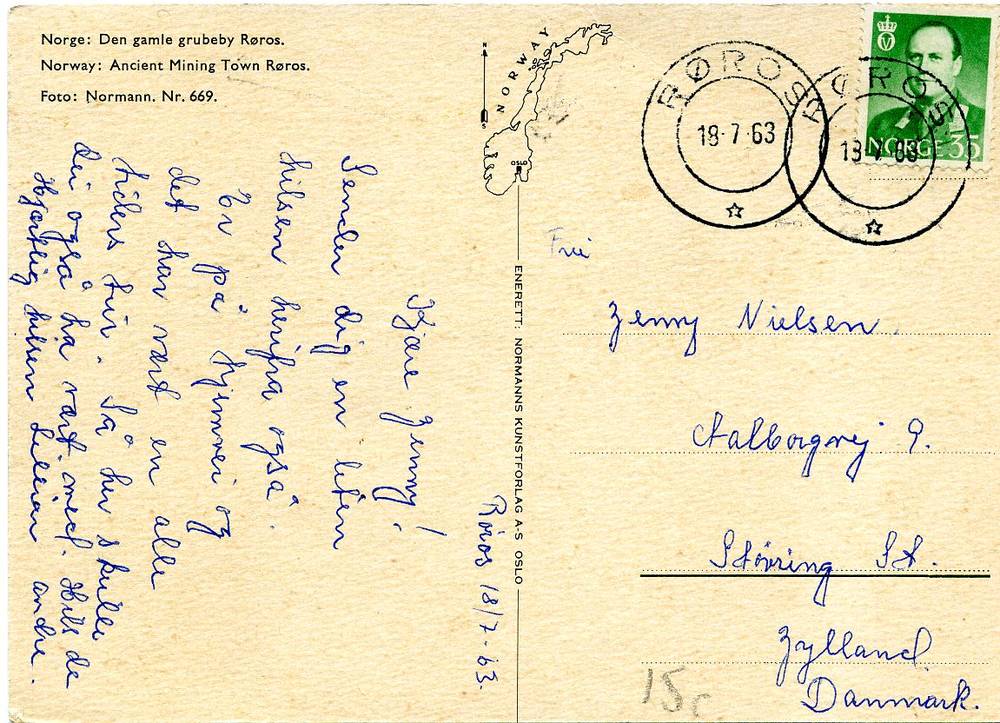 Norge: Den gamle grubeby Røros.
Norway: Ancient Mining Town Røros.
Foto: Normann. Nr. 669.
NORWAY
N
S
OSLO
RØROS
18-7-63
RØROS
18-7-63
NORGE 35
Røros 18/7-63.
Kjære Jenny!
Sender dig en liten
hilsen herifra også.
Er på hjemvei og
det har vært en alle
tiders tur. Så her skulle
dei også ha vært med. Hils de
Hjærtlig hilsen Lillian andre.
ENERETT: NORMANNS KUNSTFORLAG A-S OSLO
Jenny Nielsen.
Aalborgvej 9.
Støvring St.
Jylland
Danmark.
15c